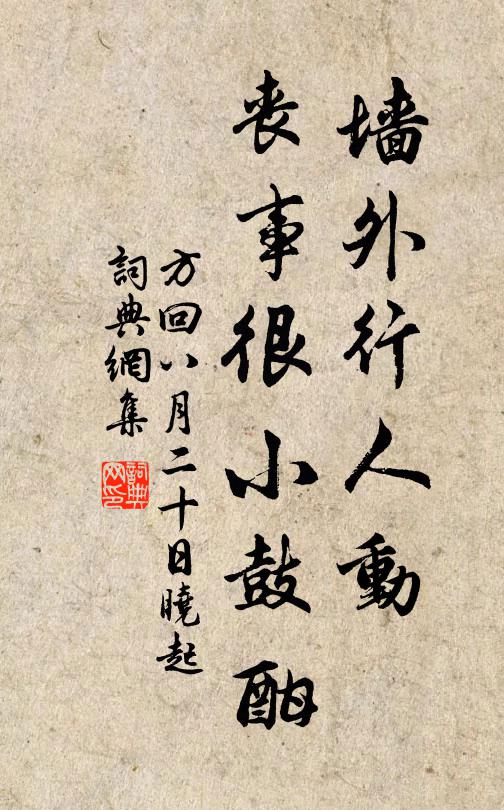 墙外行人動
丧事很小鼓酣
方回八月二十日曉起
詞典網集
詞典網印